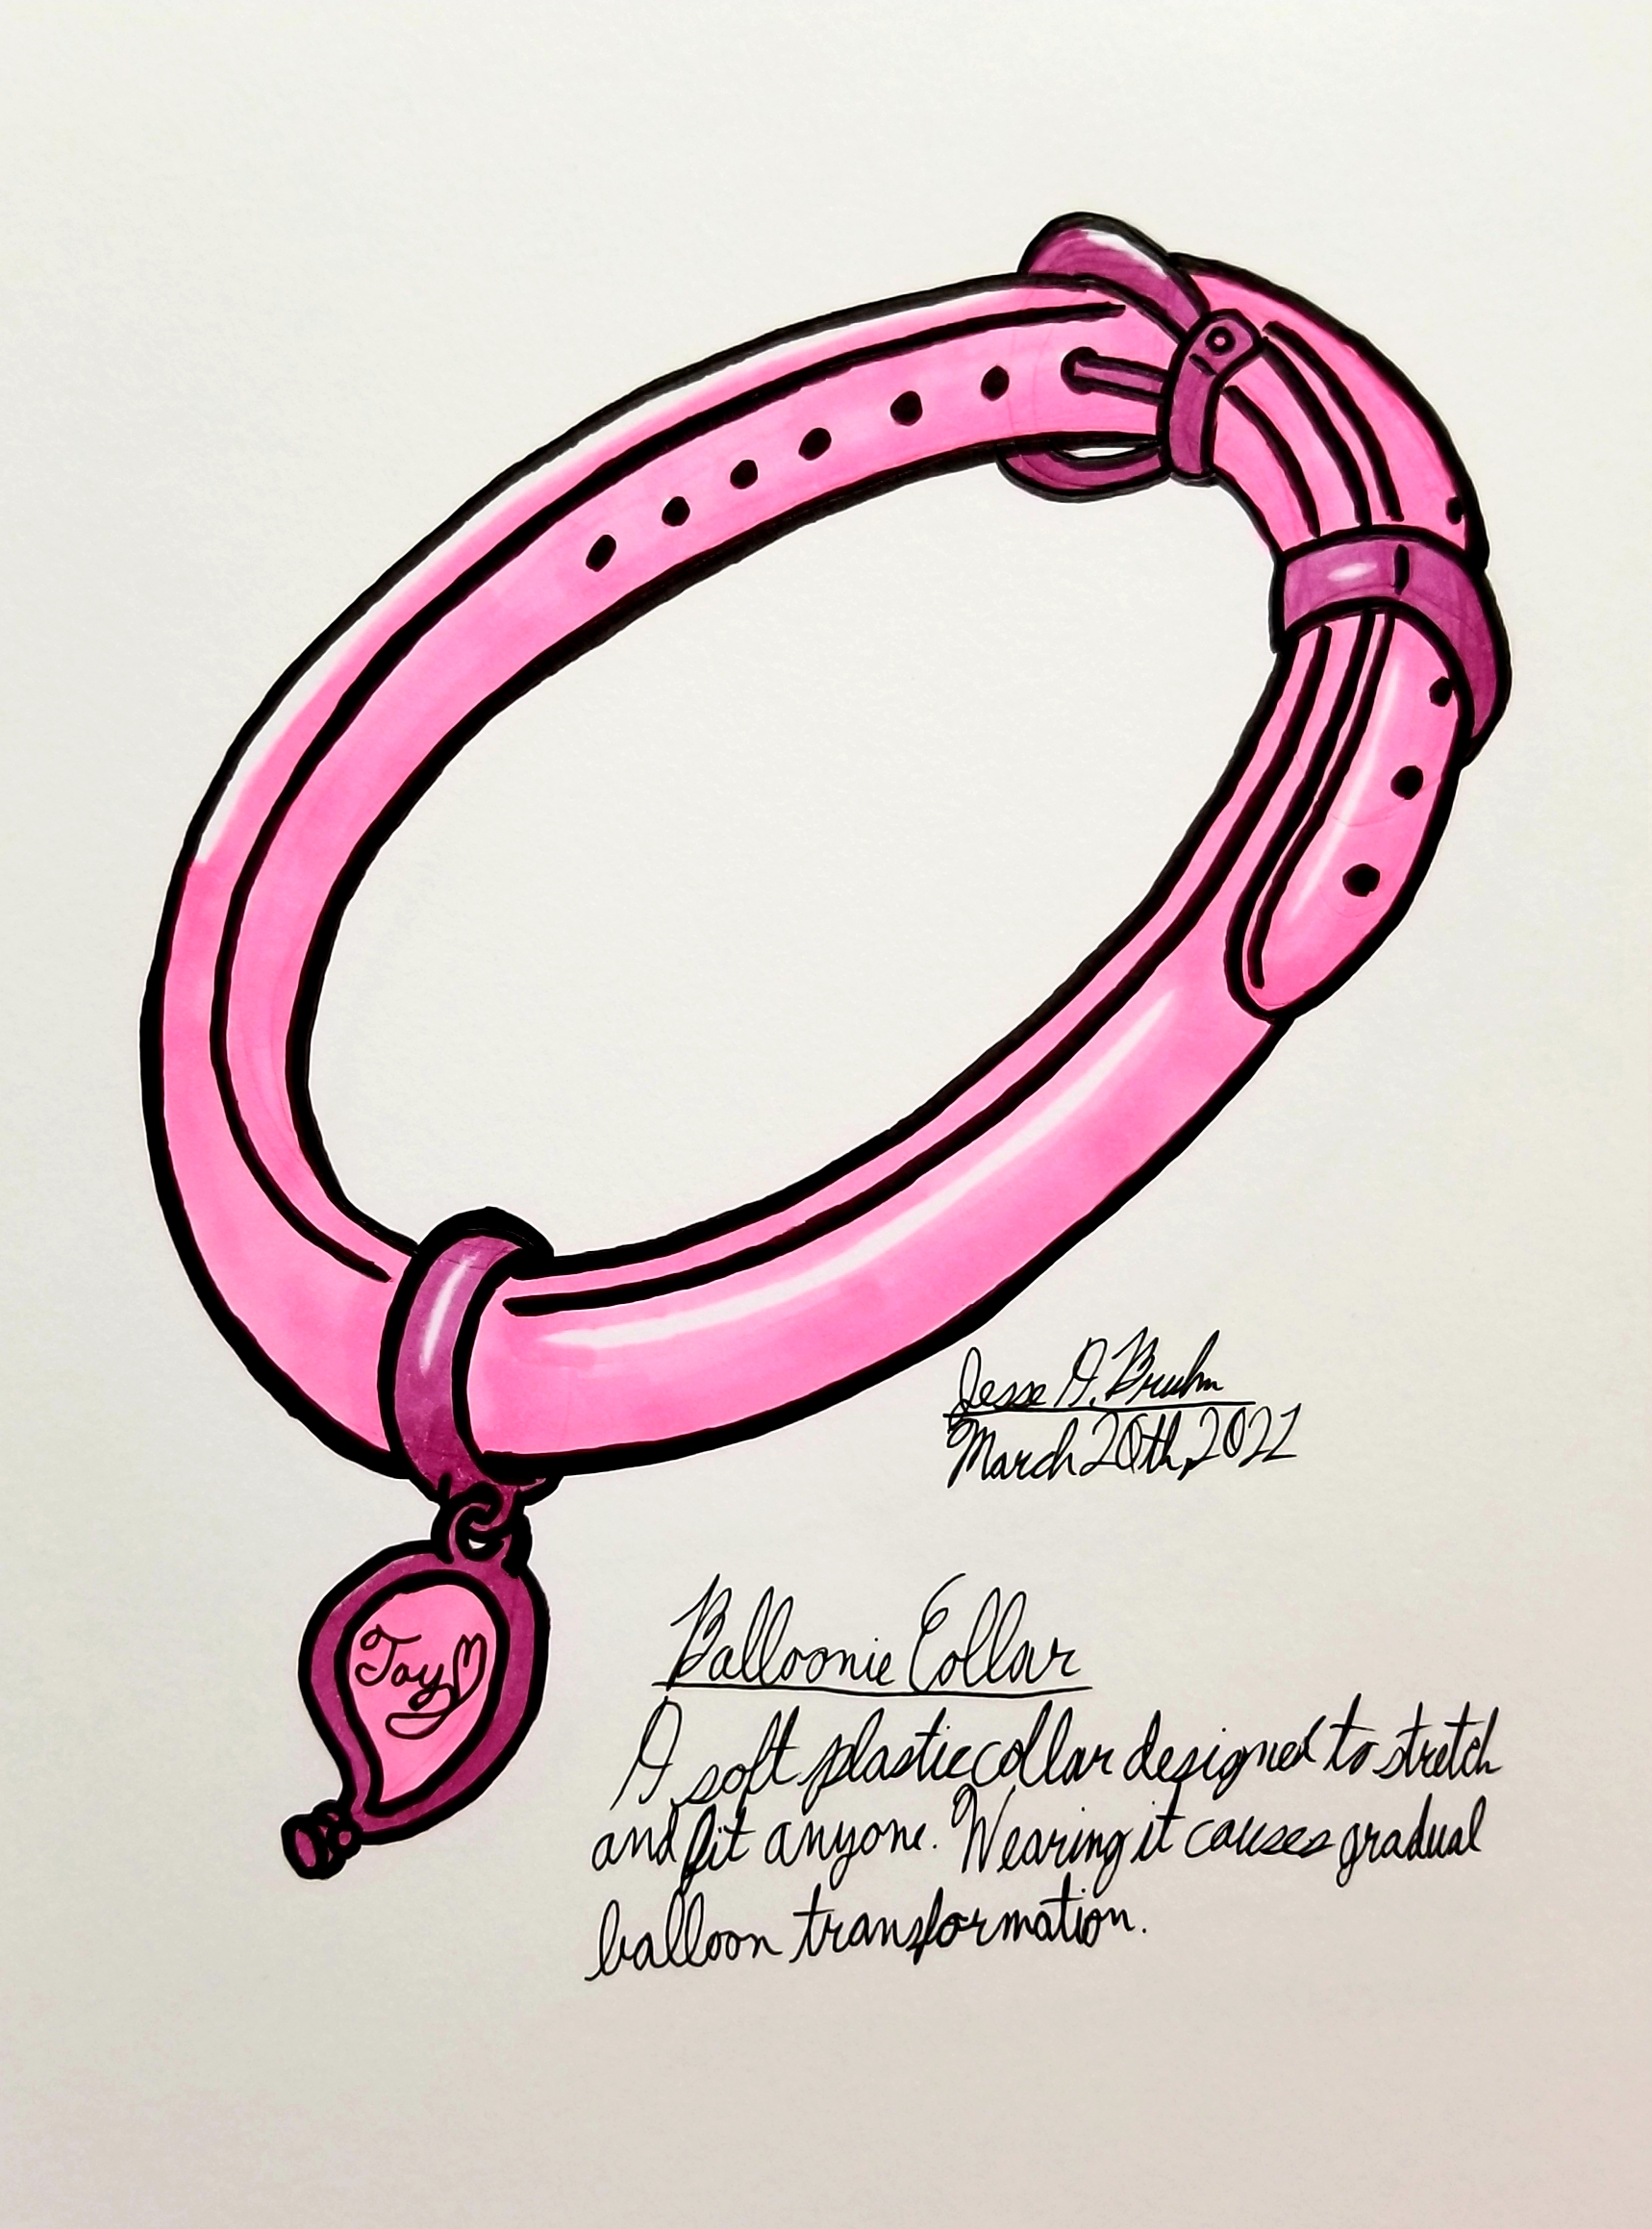 Jesse A. Bruhn
March 20th, 2021
Toy
Balloonie Collar
A soft plastic collar designed to stretch
and fit anyone. Wearing it causes gradual
balloon transformation.